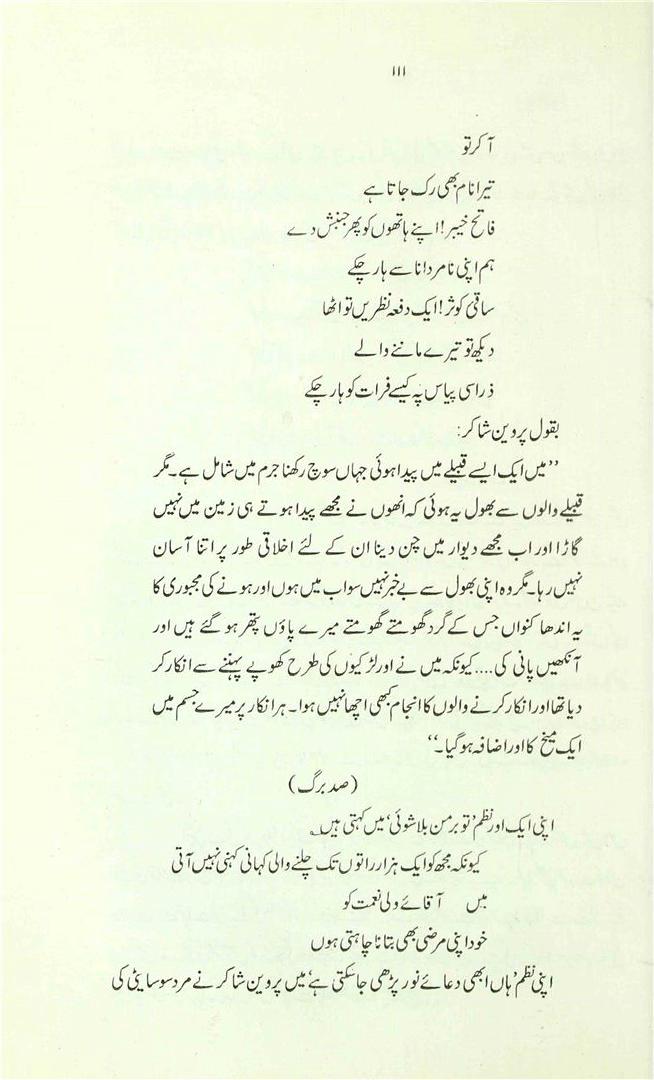 ۱۱۱
آ کر تو
تیرا نام بھی رک جاتا ہے
فاتح خیبر! اپنے ہاتھوں کو پھر جنبش دے
ہم اپنی نامرد انا سے ہار چکے
ساقیٔ کوثر! ایک دفعہ نظریں تو اٹھا
دیکھ تو تیرے ماننے والے
ذرا سی پیاس پہ کیسے فرات کو ہار چکے
بقول پروین شاکر:
’’میں ایک ایسے قبیلے میں پیدا ہوئی جہاں سوچ رکھنا جرم میں شامل ہے۔ مگر
قبیلے والوں سے بھول یہ ہوئی کہ انھوں نے مجھے پیدا ہوتے ہی زمین میں نہیں
گاڑا اور اب مجھے دیوار میں چن دینا ان کے لئے اخلاقی طور پر اتنا آسان
نہیں رہا۔ مگر وہ اپنی بھول سے بے خبر نہیں سو اب میں ہوں اور ہونے کی مجبوری کا
یہ اندھا کنواں جس کے گرد گھومتے گھومتے میرے پاؤں پتھر ہو گئے ہیں اور
آنکھیں پانی کی.... کیونکہ میں نے اور لڑکیوں کی طرح کھوپے پہننے سے انکار کر
دیا تھا اور انکار کرنے والوں کا انجام کبھی اچھا نہیں ہوا۔ ہر انکار پر میرے جسم میں
ایک میخ کا اور اضافہ ہو گیا۔‘‘
(صد برگ)
اپنی ایک اور نظم ’تو برمن بلا شوئی‘ میں کہتی ہیں؎
کیونکہ مجھ کو ایک ہزار راتوں تک چلنے والی کہانی کہنی نہیں آتی
میں آقائے ولی نعمت کو
خود اپنی مرضی بھی بتانا چاہتی ہوں
اپنی نظم ’ہاں ابھی دعائے نور پڑھی جا سکتی ہے‘ میں پروین شاکر نے مرد سوسایٹی کی